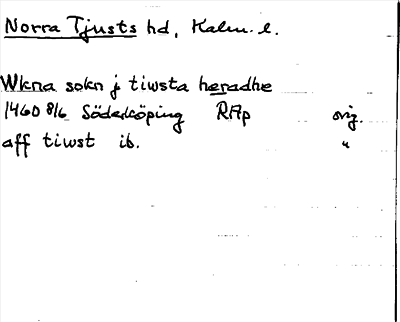 Norra Tjusts hd, Kalm. l.
Wkna sokn j tiwsta heradhe
1460 8/6 Söderköping RAp orig.
aff tiwst ib. "